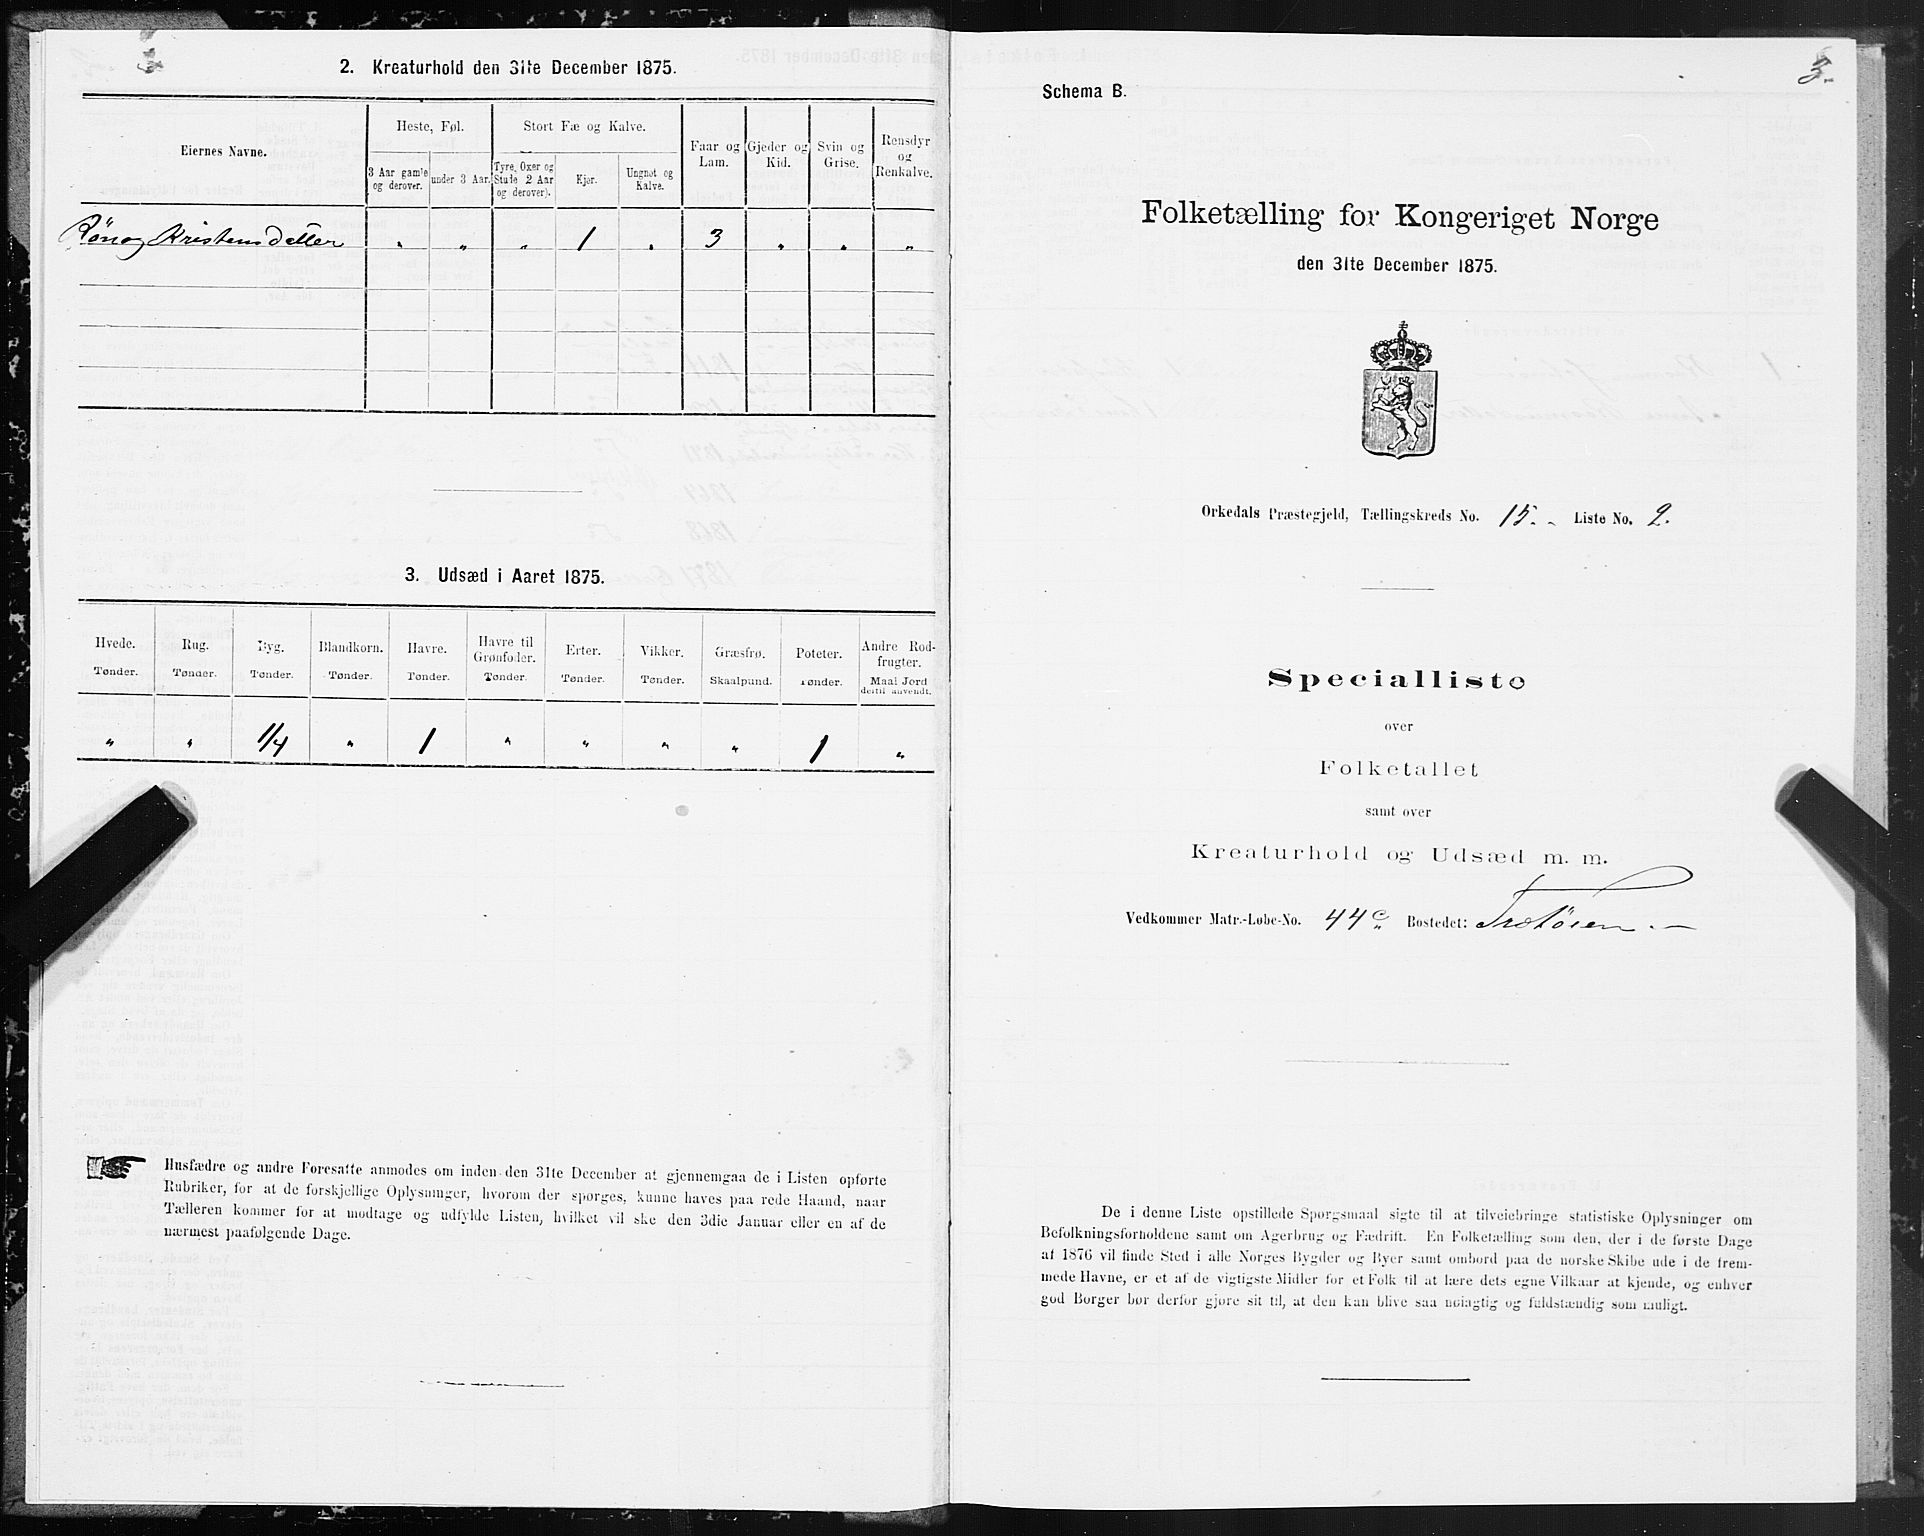 2. Kreaturhold den 31te December 1875.
Eiernes Navne.
Heste, Føl.
Stort Fæ og Kalve.
Faar og Lam.
Gjeder og Kid.
Svin og Grise.
Rensdyr og Renkalve.
3 Aar gamle og derover.
under 3 Aar.
Tyre, Oxer og Stude (2 Aar og derover).
Kjør.
Ungnøt og Kalve.
Kristensdatter " " " 1 " 3 " " "
3. Udsæd i Aaret 1875.
Hvede. Rug. Byg. Blandkorn. Havre. Havre til Grønfoder. Erter. Vikker. Græsfrø. Poteter. Andre Rodfrugter.
Tønder. Tønder. Tønder. Tønder. Tønder. Tønder. Tønder. Tønder. Skaalpund. Tønder. Maal Jord dertil anvendt.
" " 1/4 " 1 " " " " 1 "
Husfædre og andre Foresatte anmodes om inden den 31te December at gjennemgaa de i Listen opførte
Rubriker, for at de forskjellige Oplysninger, hvorom der spørges, kunne haves paa rede Haand, naar
Tælleren kommer for at modtage og udfylde Listen, hvilket vil ske den 3die Januar eller en af de
nærmest paafølgende Dage.
3.
Schema B.
Folketælling for Kongeriget Norge
den 31te December 1875.
Orkedals Præstegjeld, Tællingskreds No. 15. Liste No. 2.
Specialliste
over
Folketallet
samt over
Kreaturhold og Udsæd m. m.
Vedkommer Matr.-Løbe-No. 44c Bostedet:
De i denne Liste opstillede Spørgsmaal sigte til at tilveiebringe statistiske Oplysninger om
Befolkningsforholdene samt om Agerbrug og Fædrift. En Folketælling som den, der i de første Dage
af 1876 vil finde Sted i alle Norges Bygder og Byer samt ombord paa de norske Skibe ude i de frem-
mede Havne, er et af de vigtigste Midler for et Folk til at lære dets egne Vilkaar at kjende, og enhver
god Borger bør derfor gjøre sit til, at den kan blive saa nøiagtig og fuldstændig som muligt.